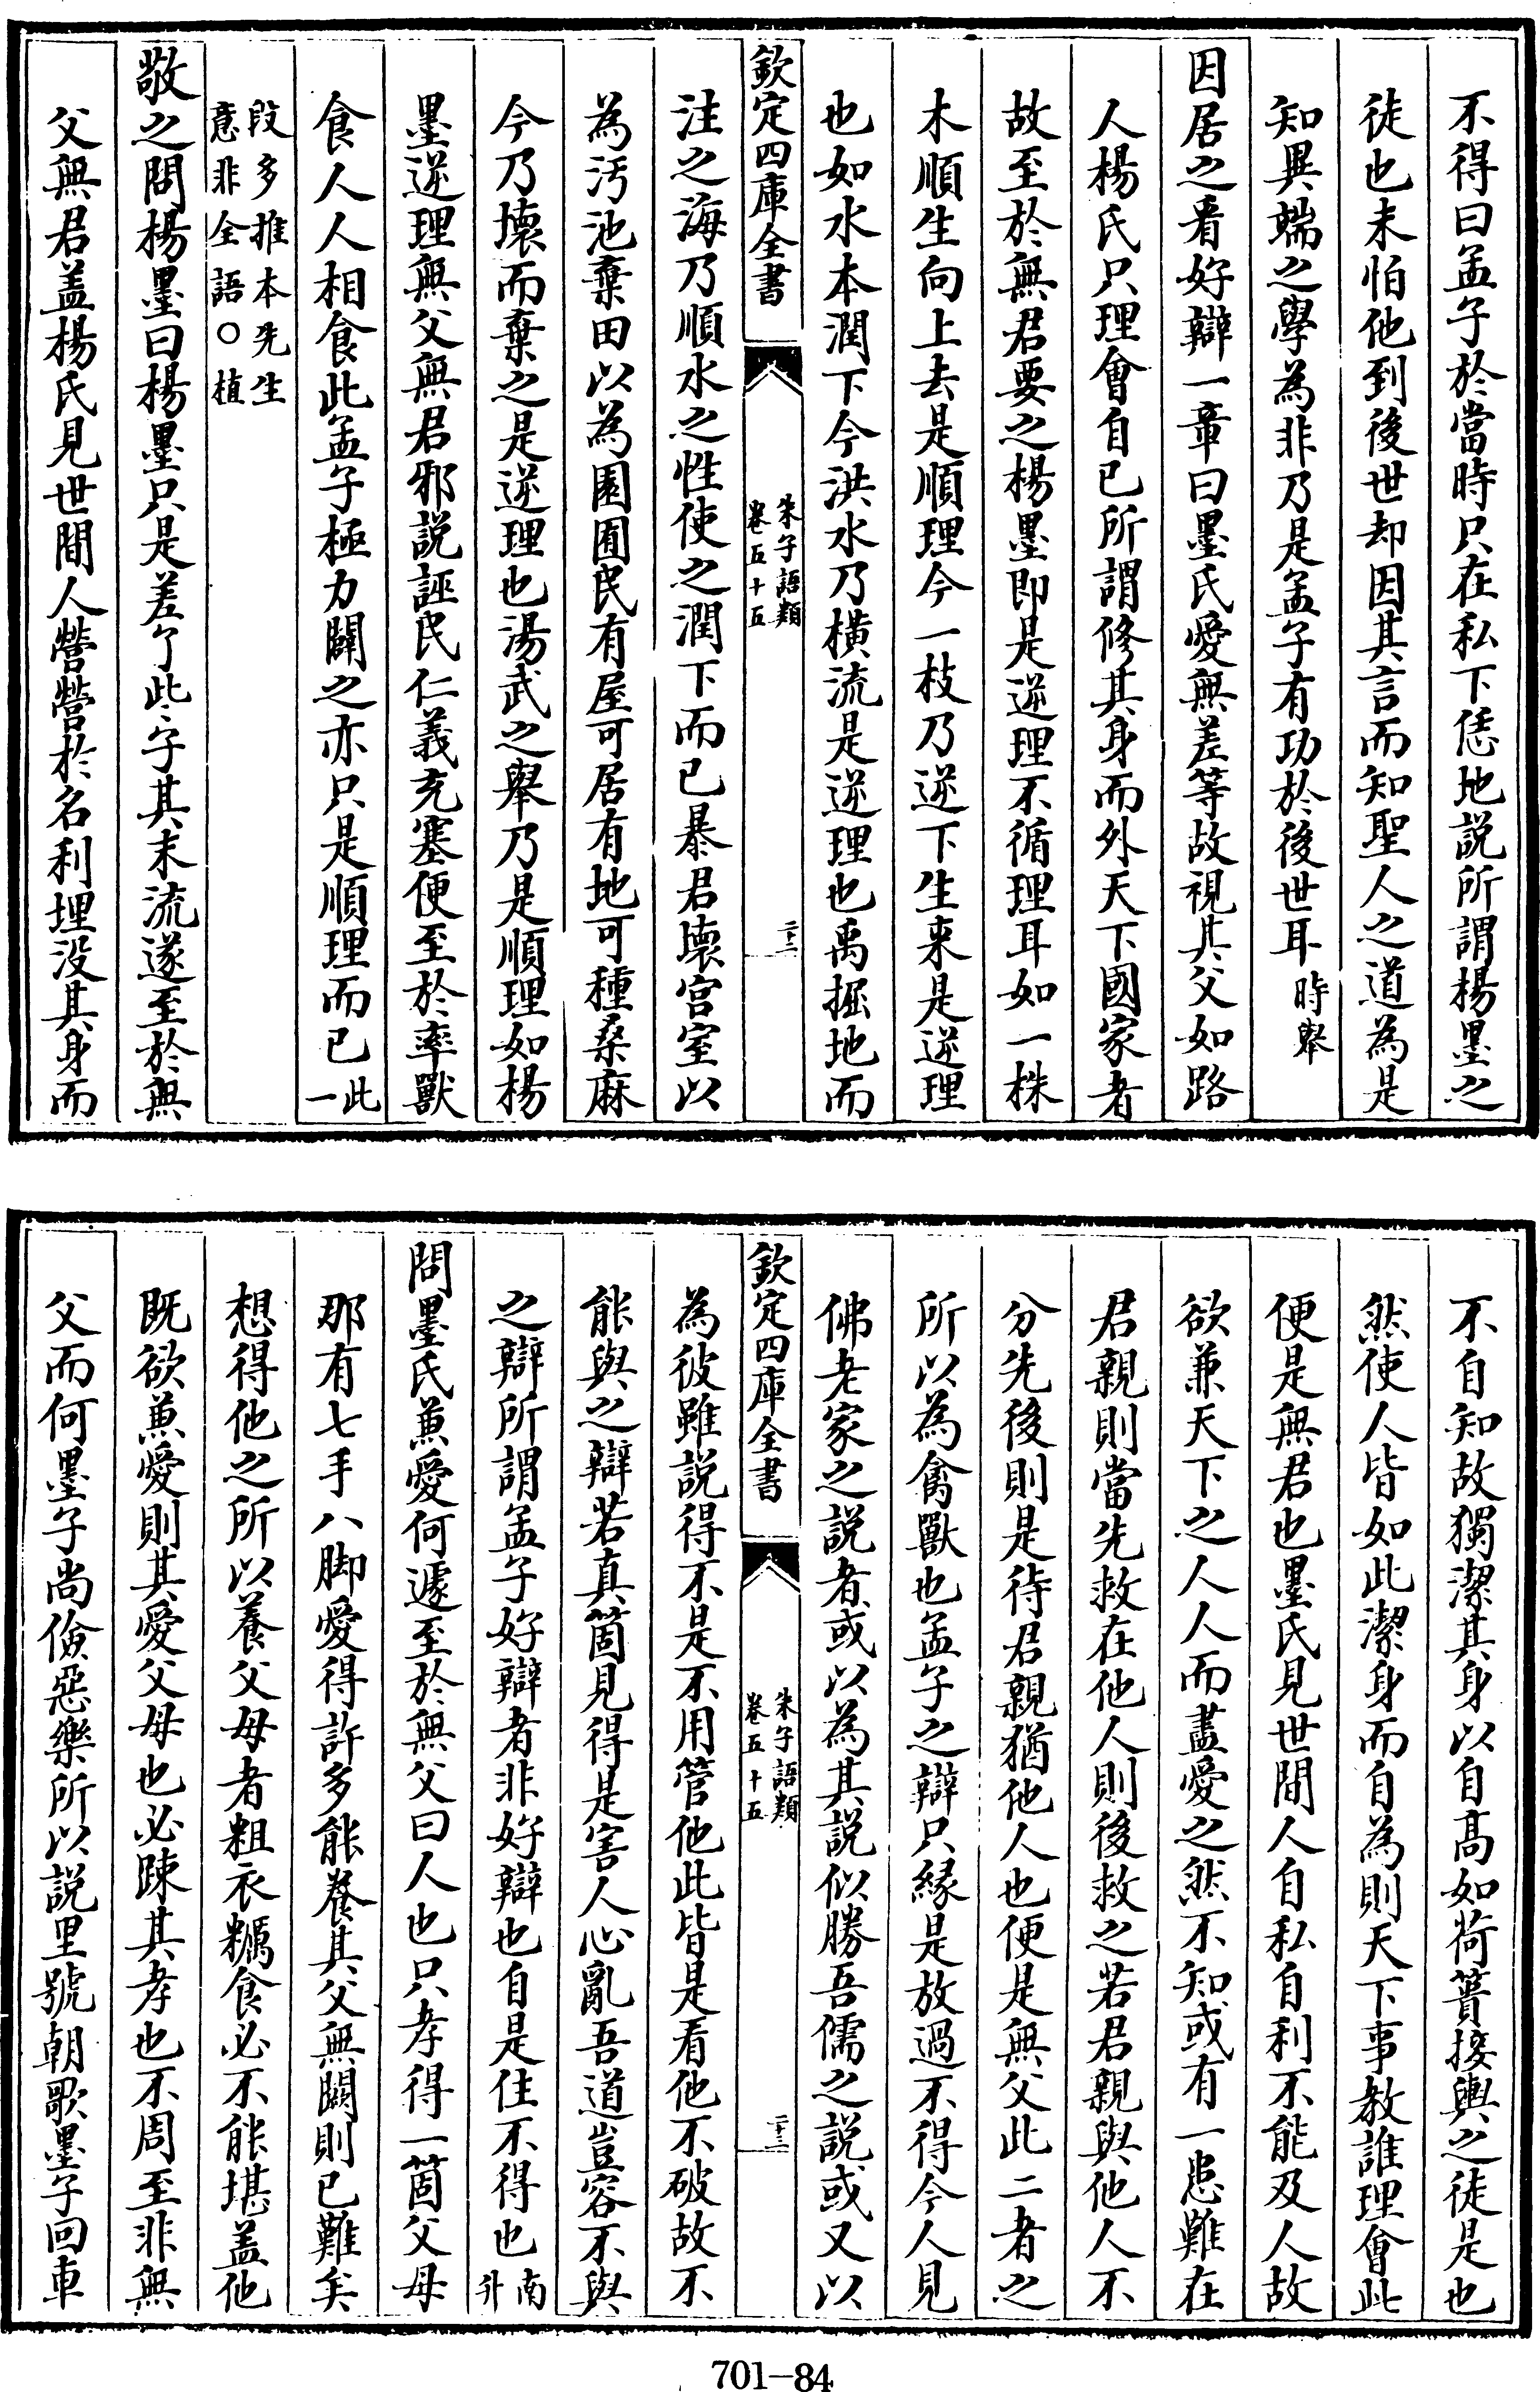 不得曰孟子於當時只在私下恁地説所謂楊墨之
徒也未怕他到後世却因其言而知聖人之道為是
知異端之學為非乃是孟子有功於後世耳時舉
因居之看好辯一章曰墨氏愛無差等故視其父如路
人楊氏只理會自已所謂修其身而外天下國家者
故至於無君要之楊墨即是逆理不循理耳如一株
木順生向上去是順理今一枝乃逆下生来是逆理
也如水本潤下今洪水乃横流是逆理也禹掘地而
欽定四庫全書
朱子語類
卷五十五
二十二
注之海乃順水之性使之潤下而已暴君壊宫室以
為汚池棄田以為園囿民有屋可居有地可種桑麻
今乃壊而棄之是逆理也湯武之舉乃是順理如楊
墨逆理無父無君邪説誣民仁義充塞便至於率獸
食人人相食此孟子極力闢之亦只是順理而已此一
段多推本先生
意非全語〇植
敬之問楊墨曰楊墨只是差了此子其末流遂至於無
父無君盖楊氏見世間人營營於名利埋没其身而
不自知故獨潔其身以自髙如荷蕢接輿之徒是也
然使人皆如此潔身而自為則天下事教誰理會此
便是無君也墨氏見世間人自私自利不能及人故
欲兼天下之人人而盡愛之然不知或有一患難在
君親則當先救在他人則後救之若君親與他人不
分先後則是待君親猶他人也便是無父此二者之
所以為禽獸也孟子之辯只縁是放過不得今人見
佛老家之説者或以為其説似勝吾儒之説或又以
欽定四庫全書
朱子語類
卷五十五
二十三
為彼雖説得不是不用管他此皆是看他不破故不
能與之辯若真箇見得是害人心亂吾道豈容不與
之辯所謂孟子好辯者非好辯也自是住不得也南升
問墨氏兼愛何遽至於無父曰人也只孝得一箇父母
那有七手八脚愛得許多能養其父無闕則已難矣
想得他之所以養父母者粗衣糲食必不能堪盖他
既欲兼愛則其愛父母也必疎其孝也不周至非無
父而何墨子尚儉惡樂所以説里號朝歌墨子回車
701-84